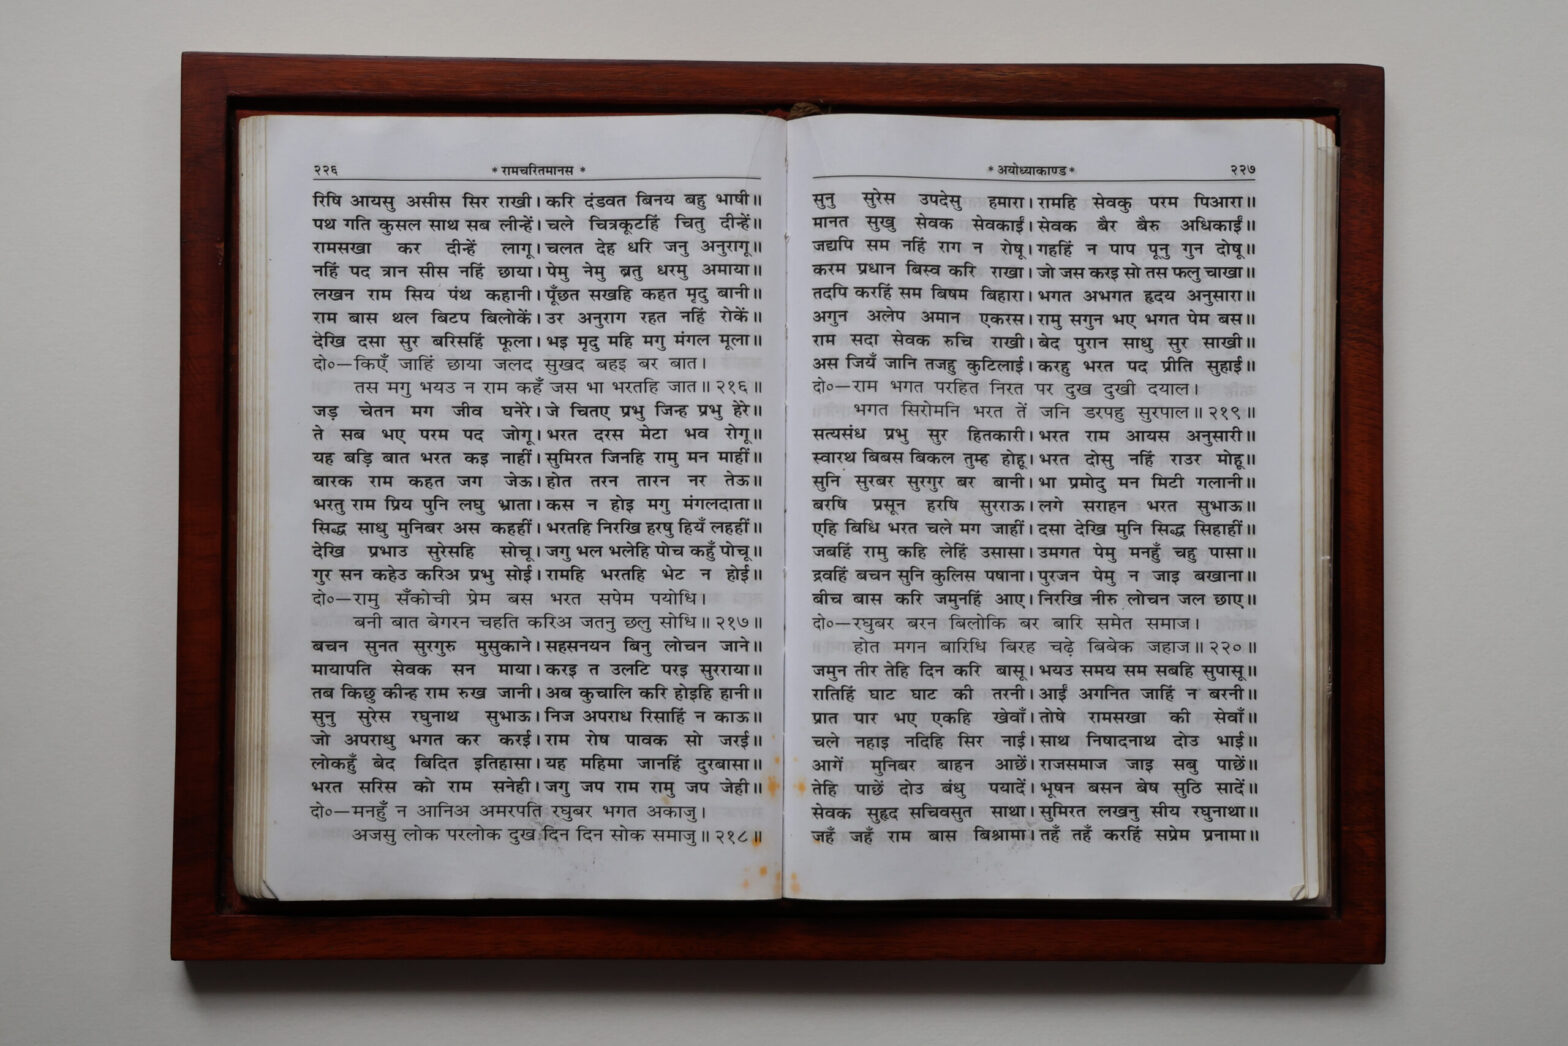 २२६ * रामचरितमानस *
रिषि आयसु असीस सिर राखी। करि दंडवत बिनय बहु भाषी॥
पथ गति कुसल साथ सब लीन्हें। चले चित्रकूटहिं चितु दीन्हें॥
रामसखा कर दीन्हें लागू। चलत देह धरि जनु अनुरागू॥
नहिं पद त्रान सीस नहिं छाया। पेमु नेमु ब्रतु धरमु अमाया॥
लखन राम सिय पंथ कहानी। पूँछत सखहि कहत मृदु बानी॥
राम बास थल बिटप बिलोकें। उर अनुराग रहत नहिं रोकें॥
देखि दसा सुर बरिसहिं फूला। भइ मृदु महि मगु मंगल मूला॥
दो०—किएँ जाहिं छाया जलद सुखद बहइ बर बात।
तस मगु भयउ न राम कहँ जस भा भरतहि जात॥ २१६॥
जड़ चेतन मग जीव घनेरे। जे चितए प्रभु जिन्ह प्रभु हेरे॥
ते सब भए परम पद जोगू। भरत दरस मेटा भव रोगू॥
यह बड़ि बात भरत कइ नाहीं। सुमिरत जिनहि रामु मन माहीं॥
बारक राम कहत जग जेऊ। होत तरन तारन नर तेऊ॥
भरतु राम प्रिय पुनि लघु भ्राता। कस न होइ मगु मंगलदाता॥
सिद्ध साधु मुनिबर अस कहहीं। भरतहि निरखि हरषु हियँ लहहीं॥
देखि प्रभाउ सुरेसहि सोचू। जगु भल भलेहि पोच कहुँ पोचू॥
गुर सन कहेउ करिअ प्रभु सोई। रामहि भरतहि भेट न होई॥
दो०—रामु सँकोची प्रेम बस भरत सपेम पयोधि।
बनी बात बेगरन चहति करिअ जतनु छलु सोधि॥ २१७॥
बचन सुनत सुरगुरु मुसुकाने। सहसनयन बिनु लोचन जाने॥
मायापति सेवक सन माया। करइ त उलटि परइ सुरराया॥
तब किछु कीन्ह राम रुख जानी। अब कुचालि करि होइहि हानी॥
सुनु सुरेस रघुनाथ सुभाऊ। निज अपराध रिसाहिं न काऊ॥
जो अपराधु भगत कर करई। राम रोष पावक सो जरई॥
लोकहुँ बेद बिदित इतिहासा। यह महिमा जानहिं दुरबासा॥
भरत सरिस को राम सनेही। जगु जप राम रामु जप जेही॥
दो०—मनहुँ न आनिअ अमरपति रघुबर भगत अकाजु।
अजसु लोक परलोक दुख दिन दिन सोक समाजु॥ २१८॥
* अयोध्याकाण्ड * २२७
सुनु सुरेस उपदेसु हमारा। रामहि सेवकु परम पिआरा॥
मानत सुखु सेवक सेवकाईं। सेवक बैर बैरु अधिकाईं॥
जद्यपि सम नहिं राग न रोषू। गहहिं न पाप पूनु गुन दोषू॥
करम प्रधान बिस्व करि राखा। जो जस करइ सो तस फलु चाखा॥
तदपि करहिं सम बिषम बिहारा। भगत अभगत हृदय अनुसारा॥
अगुन अलेप अमान एकरस। रामु सगुन भए भगत पेम बस॥
राम सदा सेवक रुचि राखी। बेद पुरान साधु सुर साखी॥
अस जियँ जानि तजहु कुटिलाई। करहु भरत पद प्रीति सुहाई॥
दो०—राम भगत परहित निरत पर दुख दुखी दयाल।
भगत सिरोमनि भरत तें जनि डरपहु सुरपाल॥ २१९॥
सत्यसंध प्रभु सुर हितकारी। भरत राम आयस अनुसारी॥
स्वारथ बिबस बिकल तुम्ह होहू। भरत दोसु नहिं राउर मोहू॥
सुनि सुरबर सुरगुर बर बानी। भा प्रमोदु मन मिटी गलानी॥
बरषि प्रसून हरषि सुरराऊ। लगे सराहन भरत सुभाऊ॥
एहि बिधि भरत चले मग जाहीं। दसा देखि मुनि सिद्ध सिहाहीं॥
जबहिं रामु कहि लेहिं उसासा। उमगत पेमु मनहुँ चहु पासा॥
द्रवहिं बचन सुनि कुलिस पषाना। पुरजन पेमु न जाइ बखाना॥
बीच बास करि जमुनहिं आए। निरखि नीरु लोचन जल छाए॥
दो०—रघुबर बरन बिलोकि बर बारि समेत समाज।
होत मगन बारिधि बिरह चढ़े बिबेक जहाज॥ २२०॥
जमुन तीर तेहि दिन करि बासू। भयउ समय सम सबहि सुपासू॥
रातिहिं घाट घाट की तरनी। आईं अगनित जाहिं न बरनी॥
प्रात पार भए एकहि खेवाँ। तोषे रामसखा की सेवाँ॥
चले नहाइ नदिहि सिर नाई। साथ निषादनाथ दोउ भाई॥
आगें मुनिबर बाहन आछें। राजसमाज जाइ सबु पाछें॥
तेहि पाछें दोउ बंधु पयादें। भूषन बसन बेष सुठि सादें॥
सेवक सुहृद सचिवसुत साथा। सुमिरत लखनु सीय रघुनाथा॥
जहँ जहँ राम बास बिश्रामा। तहँ तहँ करहिं सप्रेम प्रनामा॥